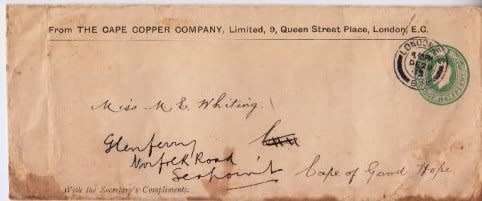 From THE CAPE COPPER COMPANY, Limited, 9, Queen Street Place, London, E.C.
LONDON
Miss M. E. Whiting.
Glenferry
Norfolk Road
Seapoint Cape of Good Hope
With the Secretary's Compliments.